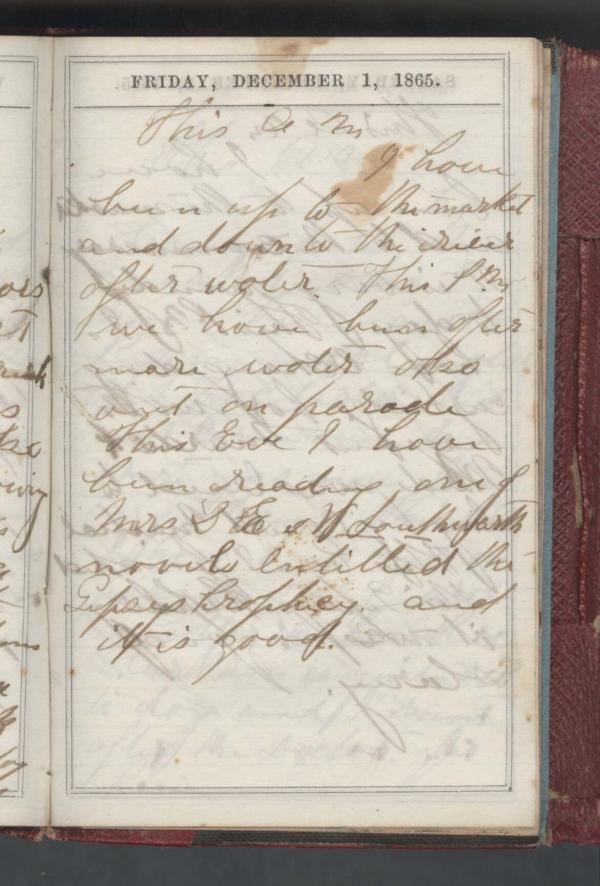 FRIDAY, DECEMBER 1, 1865.
This A M
I have
been up to the market
and down to the river
after water. This P.M
we have been after
more water also
out on parade
This Eve I have
been reading one of
Mrs E W Southworth
novels Entitled the
Gipseys Prophecy. and
it is good.